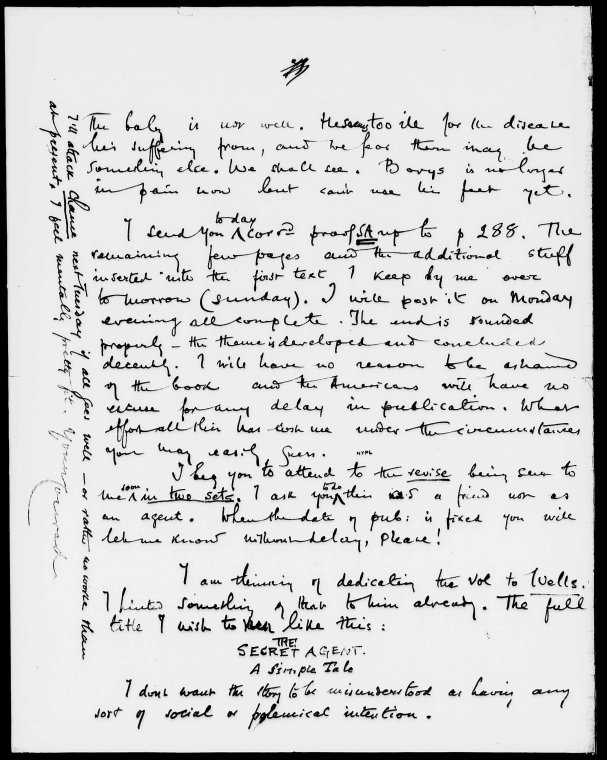 The baby is not well. He seems too ill for the disease
he's suffering from, and we fear there may be
something else. We shall see. Borys is no longer
in pain now but can't use his feet yet.
I send you today corrd proof SA up to p 288. The
remaining few pages and the additional stuff
inserted into the first text I keep by me over
to morrow (Sunday). I will post it on Monday
evening all complete. The end is rounded
properly – the theme is developed and concluded
decently. I will have no reason to be ashamed
of the book and the Americans will have no
excuse for any delay in publication. What
effort all this has cost me under the circumstances
you may easily guess.
NYPL
I beg you to attend to the revise being sent to
me soon in two sets. I ask you to do this as a friend not as
an agent. When the date of pub: is fixed you will
let me know without delay, please!
I am thinking of dedicating the vol to Wells.
I hinted something of that to him already. The full
title I wish to run like this:
THE
SECRET AGENT.
A Simple Tale
I don't want the story to be misunderstood as having any
sort of social or polemical intention.
I'll attack Chance next Tuesday if all goes well – or rather no worse than
at present. I feel mentally pretty fit. Yours Conrad